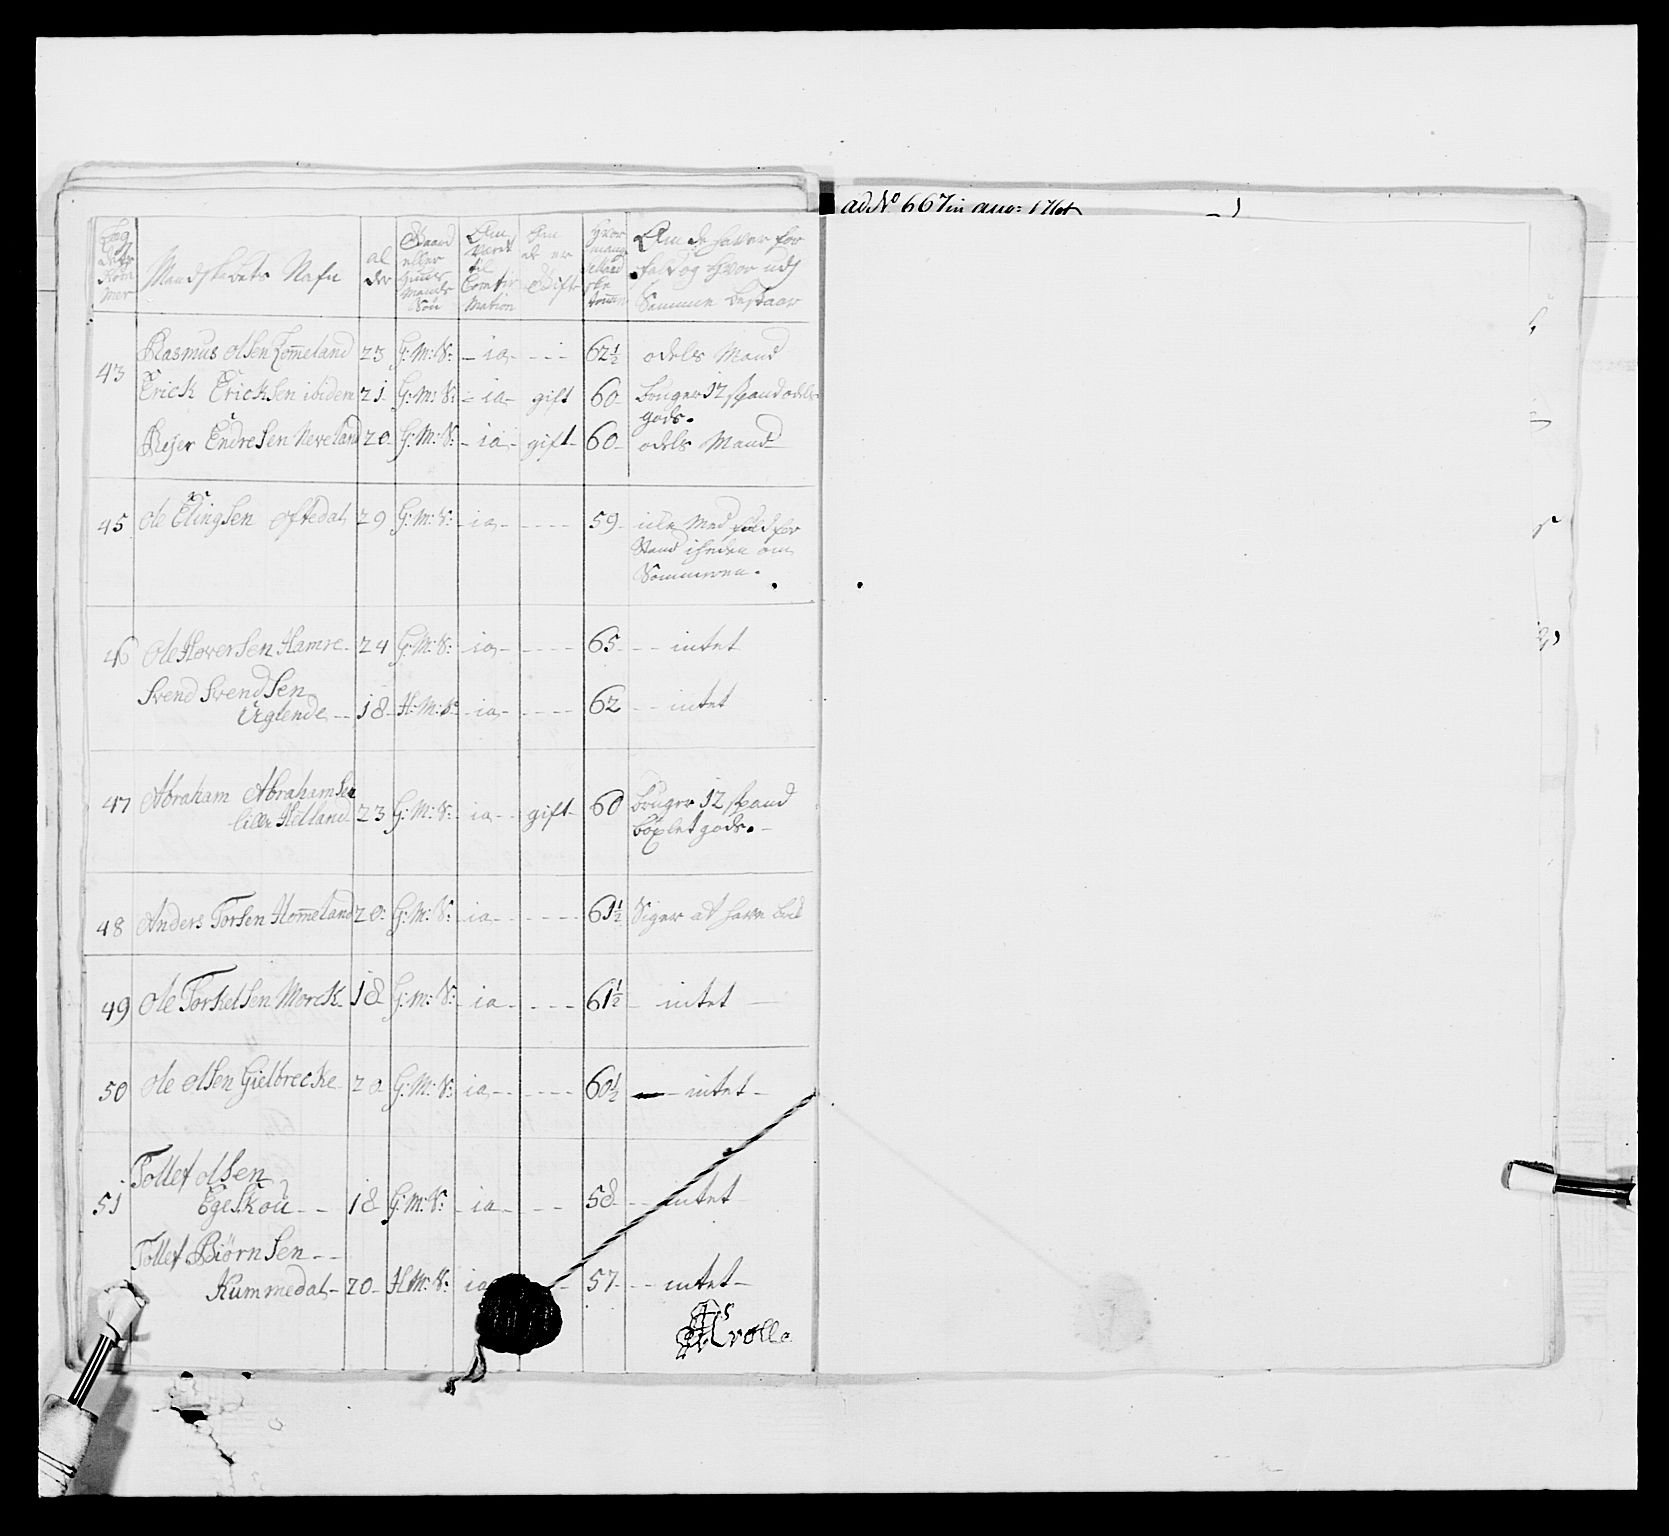 ad No 667 in anno: 1761
Mandskabets Nafn
al
der
Gaard
eller
Huus
Mands
Søn
Om
Været
til
Confir
Mation
Om
de er
Gift
Hvor
mang
Siland
ske
tomer
Om de haver for
fald og Hvor udj
Samme bestaar
43
Rasmus olsen Homeland 23 G: M: S: - ia - - - - 62½ odels Mand
Erick Ericksen ibidem 21 G: M: S: - ia - gift 60 bruger 12 spand odels
gods.
Rejer Endresen Neveland 20 G: M: S: - ia - gift - 60 - odels Mand
45 Ole Elingsen oftedal 29 G: M: S: - ia - - - - 59 -
Sommeren.
46 Ole Hoversen Hamre - 24 G: M: S: - ia - - - - 65 - - - intet
Svend Svendsen
Uglende - - 18 - H: M: S: - ia - - - - 62 - - intet
47 Abraham Abrahamsen
lille Helland 23 G: M: S: - ia - - gift - 60 bruger 12 spand
böxlet gods. -
48 Anders Torsen Homeland 20 - G: M: S: - ia - - - - 61½ Siger at have
49 Ole Torkelsen Morck - 18 - G: M: S: - ia - - - - 61½ - intet -
50 Ole olsen Gielbrecke - 20 G: M: S: ia - - - - 60½ - intet -
51 Tollef olsen
Egeskou - - 18 - G: M: S: - ia - - - 58 - - intet
Tollef Biörnsen - -
Kummedal - 20 - H: M: S: ia - 57 - - - intet -